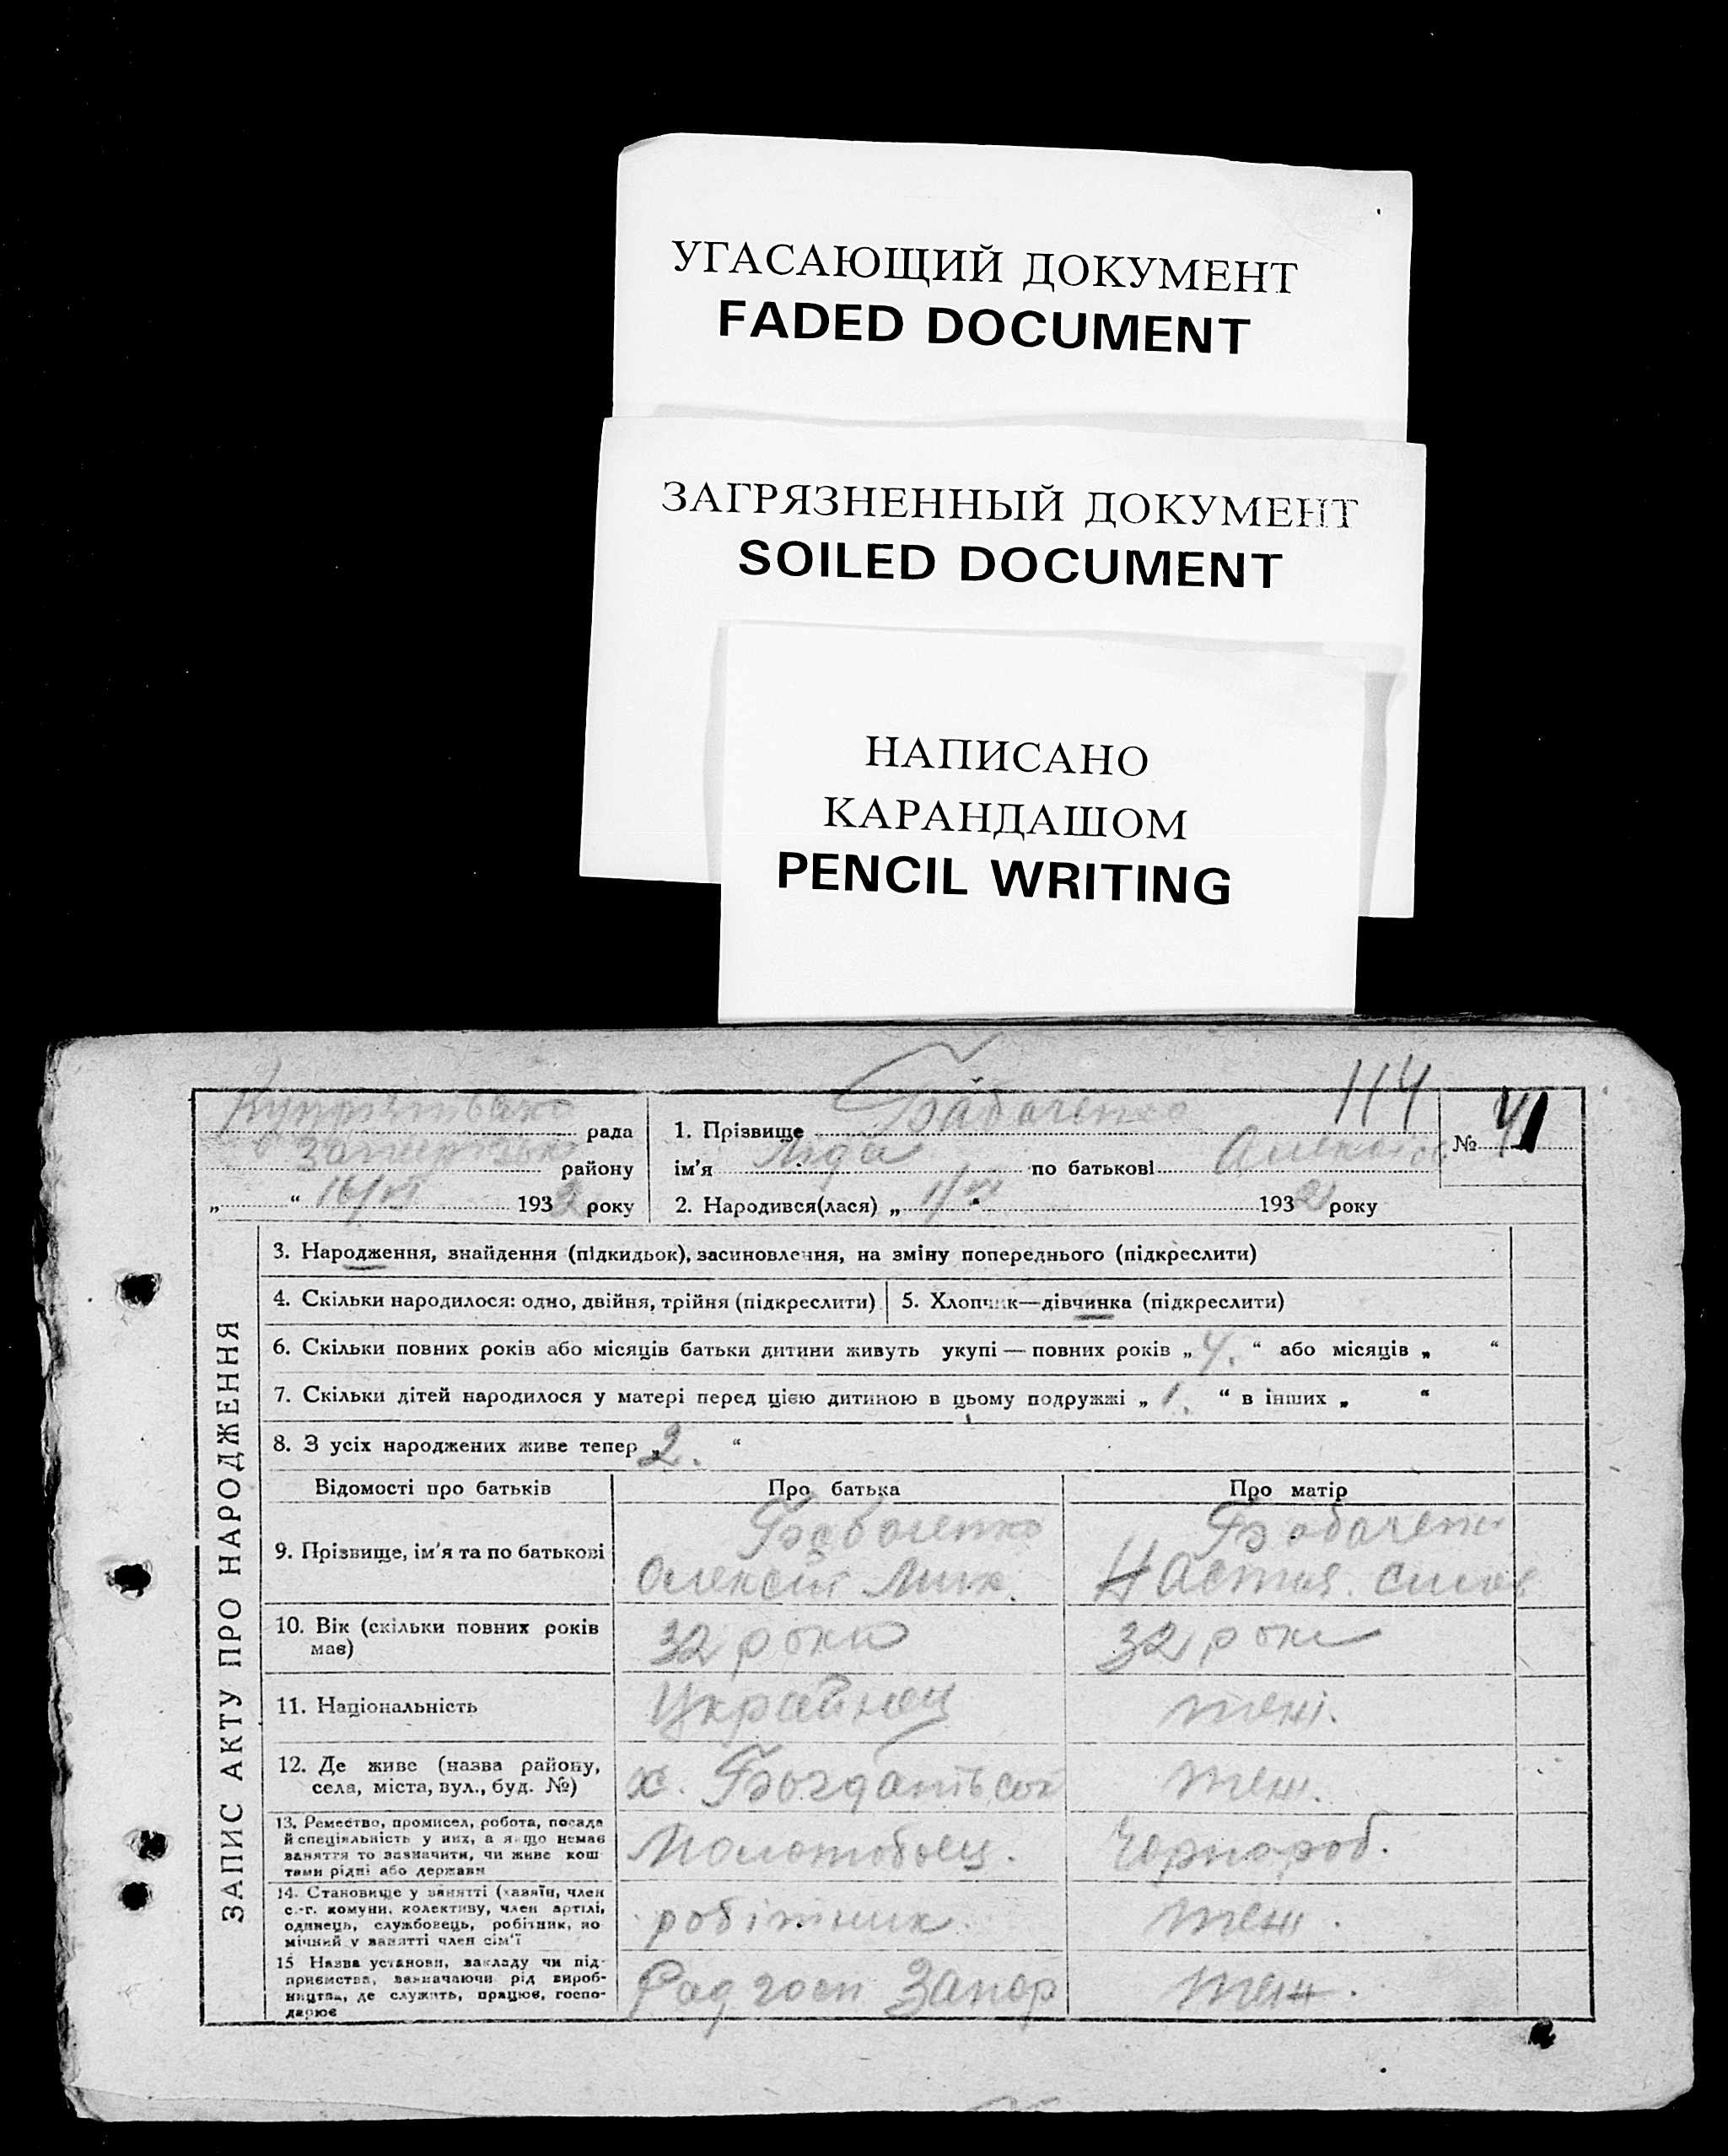 УГАСАЮЩИЙ ДОКУМЕНТ
FADED DOCUMENT
ЗАГРЯЗНЕННЫЙ ДОКУМЕНТ
SOILED DOCUMENT
НАПИСАНО
КАРАНДАШОМ
PENCIL WRITING
114
рада
району
„ “ 16/VI 1932 року
1. Прізвище Бабаченко
ім'я Ліда по батькові
№ 41
2. Народився(лася) „ 1/VI “ 1932 року
ЗАПИС АКТУ ПРО НАРОДЖЕННЯ
3. Народження, знайдення (підкидьок), засиновлення, на зміну попереднього (підкреслити)
4. Скільки народилося: одно, двійня, трійня (підкреслити)
5. Хлопчик—дівчинка (підкреслити)
6. Скільки повних років або місяців батьки дитини живуть укупі — повних років „ 4. “ або місяців „ “
7. Скільки дітей народилося у матері перед цією дитиною в цьому подружжі „ 1. “ в інших „ “
8. З усіх народжених живе тепер „ 2. “
Відомості про батьків Про батька Про матір
9. Прізвище, ім'я та по батькові
Олексій Мих.
Настя
10. Вік (скільки повних років
має)
32 роки
32 роки
11. Національність
Українец
теж.
12. Де живе (назва району,
села, міста, вул., буд. №)
х.
теж.
13. Ремество, промисел, робота, посада
й спеціяльність у них, а якщо немає
заняття то зазначити, чи живе кош-
тами рідні або держави
Молотобоец.
Чорнороб.
14. Становище у занятті (хазяїн, член
с.-г. комуни, колективу, член артілі,
одинець, службовець, робітник, по-
мічний у занятті член сім'ї
робітник.
теж.
15 Назва установи, закладу чи під-
приємства, зазначаючи рід вироб-
ництва, де служить, працює, госпо-
дарює
Радгосп Запор
теж.